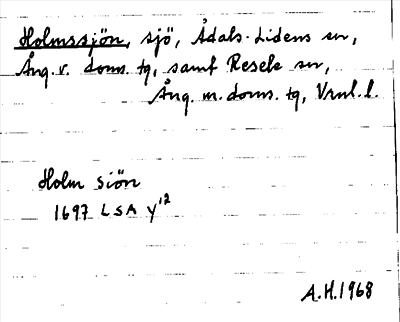 Holmssjön, sjö, Ådals-Lidens sn,
Ång. v. doms. tg, samt Resele sn,
Ång. m. doms. tg, Vnrl. l.
Holm siön
1697 LSA y¹²
A.H. 1968